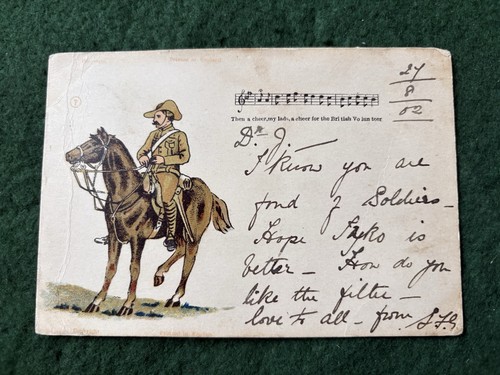 27
8
02
Then a cheer, my lads, a cheer for the British Volunteer
Dr J.
I know you are
fond of Soldiers –
Hope is
better – How do you
like the filter –
love to all – from